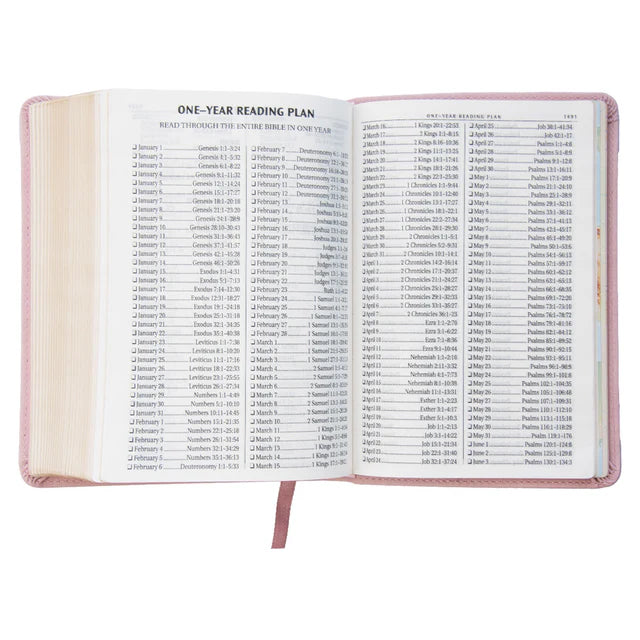 ONE–YEAR READING PLAN
READ THROUGH THE ENTIRE BIBLE IN ONE YEAR
❏ January 1 Genesis 1:1-3:24
❏ January 2 Genesis 4:1-5:32
❏ January 3 Genesis 6:1-8:22
❏ January 4 Genesis 9:1-11:32
❏ January 5 Genesis 12:1-14:24
❏ January 6 Genesis 15:1-17:27
❏ January 7 Genesis 18:1-20:18
❏ January 8 Genesis 21:1-23:20
❏ January 9 Genesis 24:1-28:9
❏ January 10 Genesis 28:10-30:43
❏ January 11 Genesis 31:1-36:43
❏ January 12 Genesis 37:1-41:57
❏ January 13 Genesis 42:1-45:28
❏ January 14 Genesis 46:1-50:26
❏ January 15 Exodus 1:1-4:31
❏ January 16 Exodus 5:1-7:13
❏ January 17 Exodus 7:14-12:30
❏ January 18 Exodus 12:31-18:27
❏ January 19 Exodus 19:1-24:18
❏ January 20 Exodus 25:1-31:18
❏ January 21 Exodus 32:1-34:35
❏ January 22 Exodus 35:1-40:38
❏ January 23 Leviticus 1:1-7:38
❏ January 24 Leviticus 8:1-10:20
❏ January 25 Leviticus 11:1-17:16
❏ January 26 Leviticus 18:1-22:33
❏ January 27 Leviticus 23:1-25:55
❏ January 28 Leviticus 26:1-27:34
❏ January 29 Numbers 1:1-4:49
❏ January 30 Numbers 5:1-10:10
❏ January 31 Numbers 10:11-14:45
❏ February 1 Numbers 15:1-21:35
❏ February 2 Numbers 22:1-25:18
❏ February 3 Numbers 26:1-31:54
❏ February 4 Numbers 32:1-34:29
❏ February 5 Numbers 35:1-36:13
❏ February 6 Deuteronomy 1:1-5:33
❏ February 7 Deuteronomy
❏ February 8 Deuteronomy
❏ February 9 Deuteronomy
❏ February 10 Deuteronomy
❏ February 11
❏ February 12
❏ February 13
❏ February 14 Joshua
❏ February 15 Joshua
❏ February 16 Joshua
❏ February 17 Joshua
❏ February 18 Judges
❏ February 19 Judges
❏ February 20 Judges
❏ February 21 Judges
❏ February 22 Judges
❏ February 23 Ruth
❏ February 24 1 Samuel
❏ February 25 1 Samuel
❏ February 26 1 Samuel
❏ February 27 1 Samuel
❏ February 28 1 Samuel
❏ March 1 1 Samuel
❏ March 2 1 Samuel
❏ March 3 2 Samuel
❏ March 4 2 Samuel
❏ March 5 2 Samuel
❏ March 6 2 Samuel
❏ March 7 2 Samuel
❏ March 8 2 Samuel
❏ March 9 2 Samuel
❏ March 10 2 Samuel
❏ March 11 1 Kings
❏ March 12 1 Kings
❏ March 13 1 Kings
❏ March 14 1 Kings
❏ March 15 1 Kings
ONE–YEAR READING PLAN 1493
❏ March 16 1 Kings 20:1-22:53
❏ March 17 2 Kings 1:1-8:15
❏ March 18 2 Kings 8:16-10:36
❏ March 19 2 Kings 11:1-13:25
❏ March 20 2 Kings 14:1-17:41
❏ March 21 2 Kings 18:1-21:26
❏ March 22 2 Kings 22:1-25:30
❏ March 23 1 Chronicles 1:1-9:44
❏ March 24 1 Chronicles 10:1-12:40
❏ March 25 1 Chronicles 13:1-17:27
❏ March 26 1 Chronicles 18:1-22:1
❏ March 27 1 Chronicles 22:2-27:34
❏ March 28 1 Chronicles 28:1-29:30
❏ March 29 2 Chronicles 1:1-5:1
❏ March 30 2 Chronicles 5:2-9:31
❏ March 31 2 Chronicles 10:1-14:1
❏ April 1 2 Chronicles 14:2-16:14
❏ April 2 2 Chronicles 17:1-20:37
❏ April 3 2 Chronicles 21:1-24:27
❏ April 4 2 Chronicles 25:1-28:27
❏ April 5 2 Chronicles 29:1-32:33
❏ April 6 2 Chronicles 33:1-35:27
❏ April 7 2 Chronicles 36:1-23
❏ April 8 Ezra 1:1-2:70
❏ April 9 Ezra 3:1-6:22
❏ April 10 Ezra 7:1-8:36
❏ April 11 Ezra 9:1-10:44
❏ April 12 Nehemiah 1:1-2:10
❏ April 13 Nehemiah 2:11-3:32
❏ April 14 Nehemiah 4:1-7:73
❏ April 15 Nehemiah 8:1-10:39
❏ April 16 Nehemiah 11:1-13:31
❏ April 17 Esther 1:1-2:23
❏ April 18 Esther 3:1-4:17
❏ April 19 Esther 5:1-10:3
❏ April 20 Job 1:1-2:13
❏ April 21 Job 3:1-14:22
❏ April 22 Job 15:1-21:34
❏ April 23 Job 22:1-31:40
❏ April 24 Job 32:1-37:24
❏ April 25 Job 38:1-41:34
❏ April 26 Job 42:1-17
❏ April 27 Psalms 1:1-4:8
❏ April 28 Psalms 5:1-8:9
❏ April 29 Psalms 9:1-12:8
❏ April 30 Psalms 13:1-16:11
❏ May 1 Psalms 17:1-20:9
❏ May 2 Psalms 21:1-24:10
❏ May 3 Psalms 25:1-28:9
❏ May 4 Psalms 29:1-32:11
❏ May 5 Psalms 33:1-36:12
❏ May 6 Psalms 37:1-40:17
❏ May 7 Psalms 41:1-45:17
❏ May 8 Psalms 46:1-49:20
❏ May 9 Psalms 50:1-53:6
❏ May 10 Psalms 54:1-56:13
❏ May 11 Psalms 57:1-59:17
❏ May 12 Psalms 60:1-62:12
❏ May 13 Psalms 63:1-65:13
❏ May 14 Psalms 66:1-68:35
❏ May 15 Psalms 69:1-72:20
❏ May 16 Psalms 73:1-75:10
❏ May 17 Psalms 76:1-78:72
❏ May 18 Psalms 79:1-81:16
❏ May 19 Psalms 82:1-84:12
❏ May 20 Psalms 85:1-89:52
❏ May 21 Psalms 90:1-92:15
❏ May 22 Psalms 93:1-95:11
❏ May 23 Psalms 96:1-98:9
❏ May 24 Psalms 99:1-101:8
❏ May 25 Psalms 102:1-104:35
❏ May 26 Psalms 105:1-106:48
❏ May 27 Psalms 107:1-109:31
❏ May 28 Psalms 110:1-112:10
❏ May 29 Psalms 113:1-115:18
❏ May 30 Psalms 116:1-118:29
❏ May 31 Psalms 119:1-176
❏ June 1 Psalms 120:1-124:8
❏ June 2 Psalms 125:1-129:8
❏ June 3 Psalms 130:1-134:3